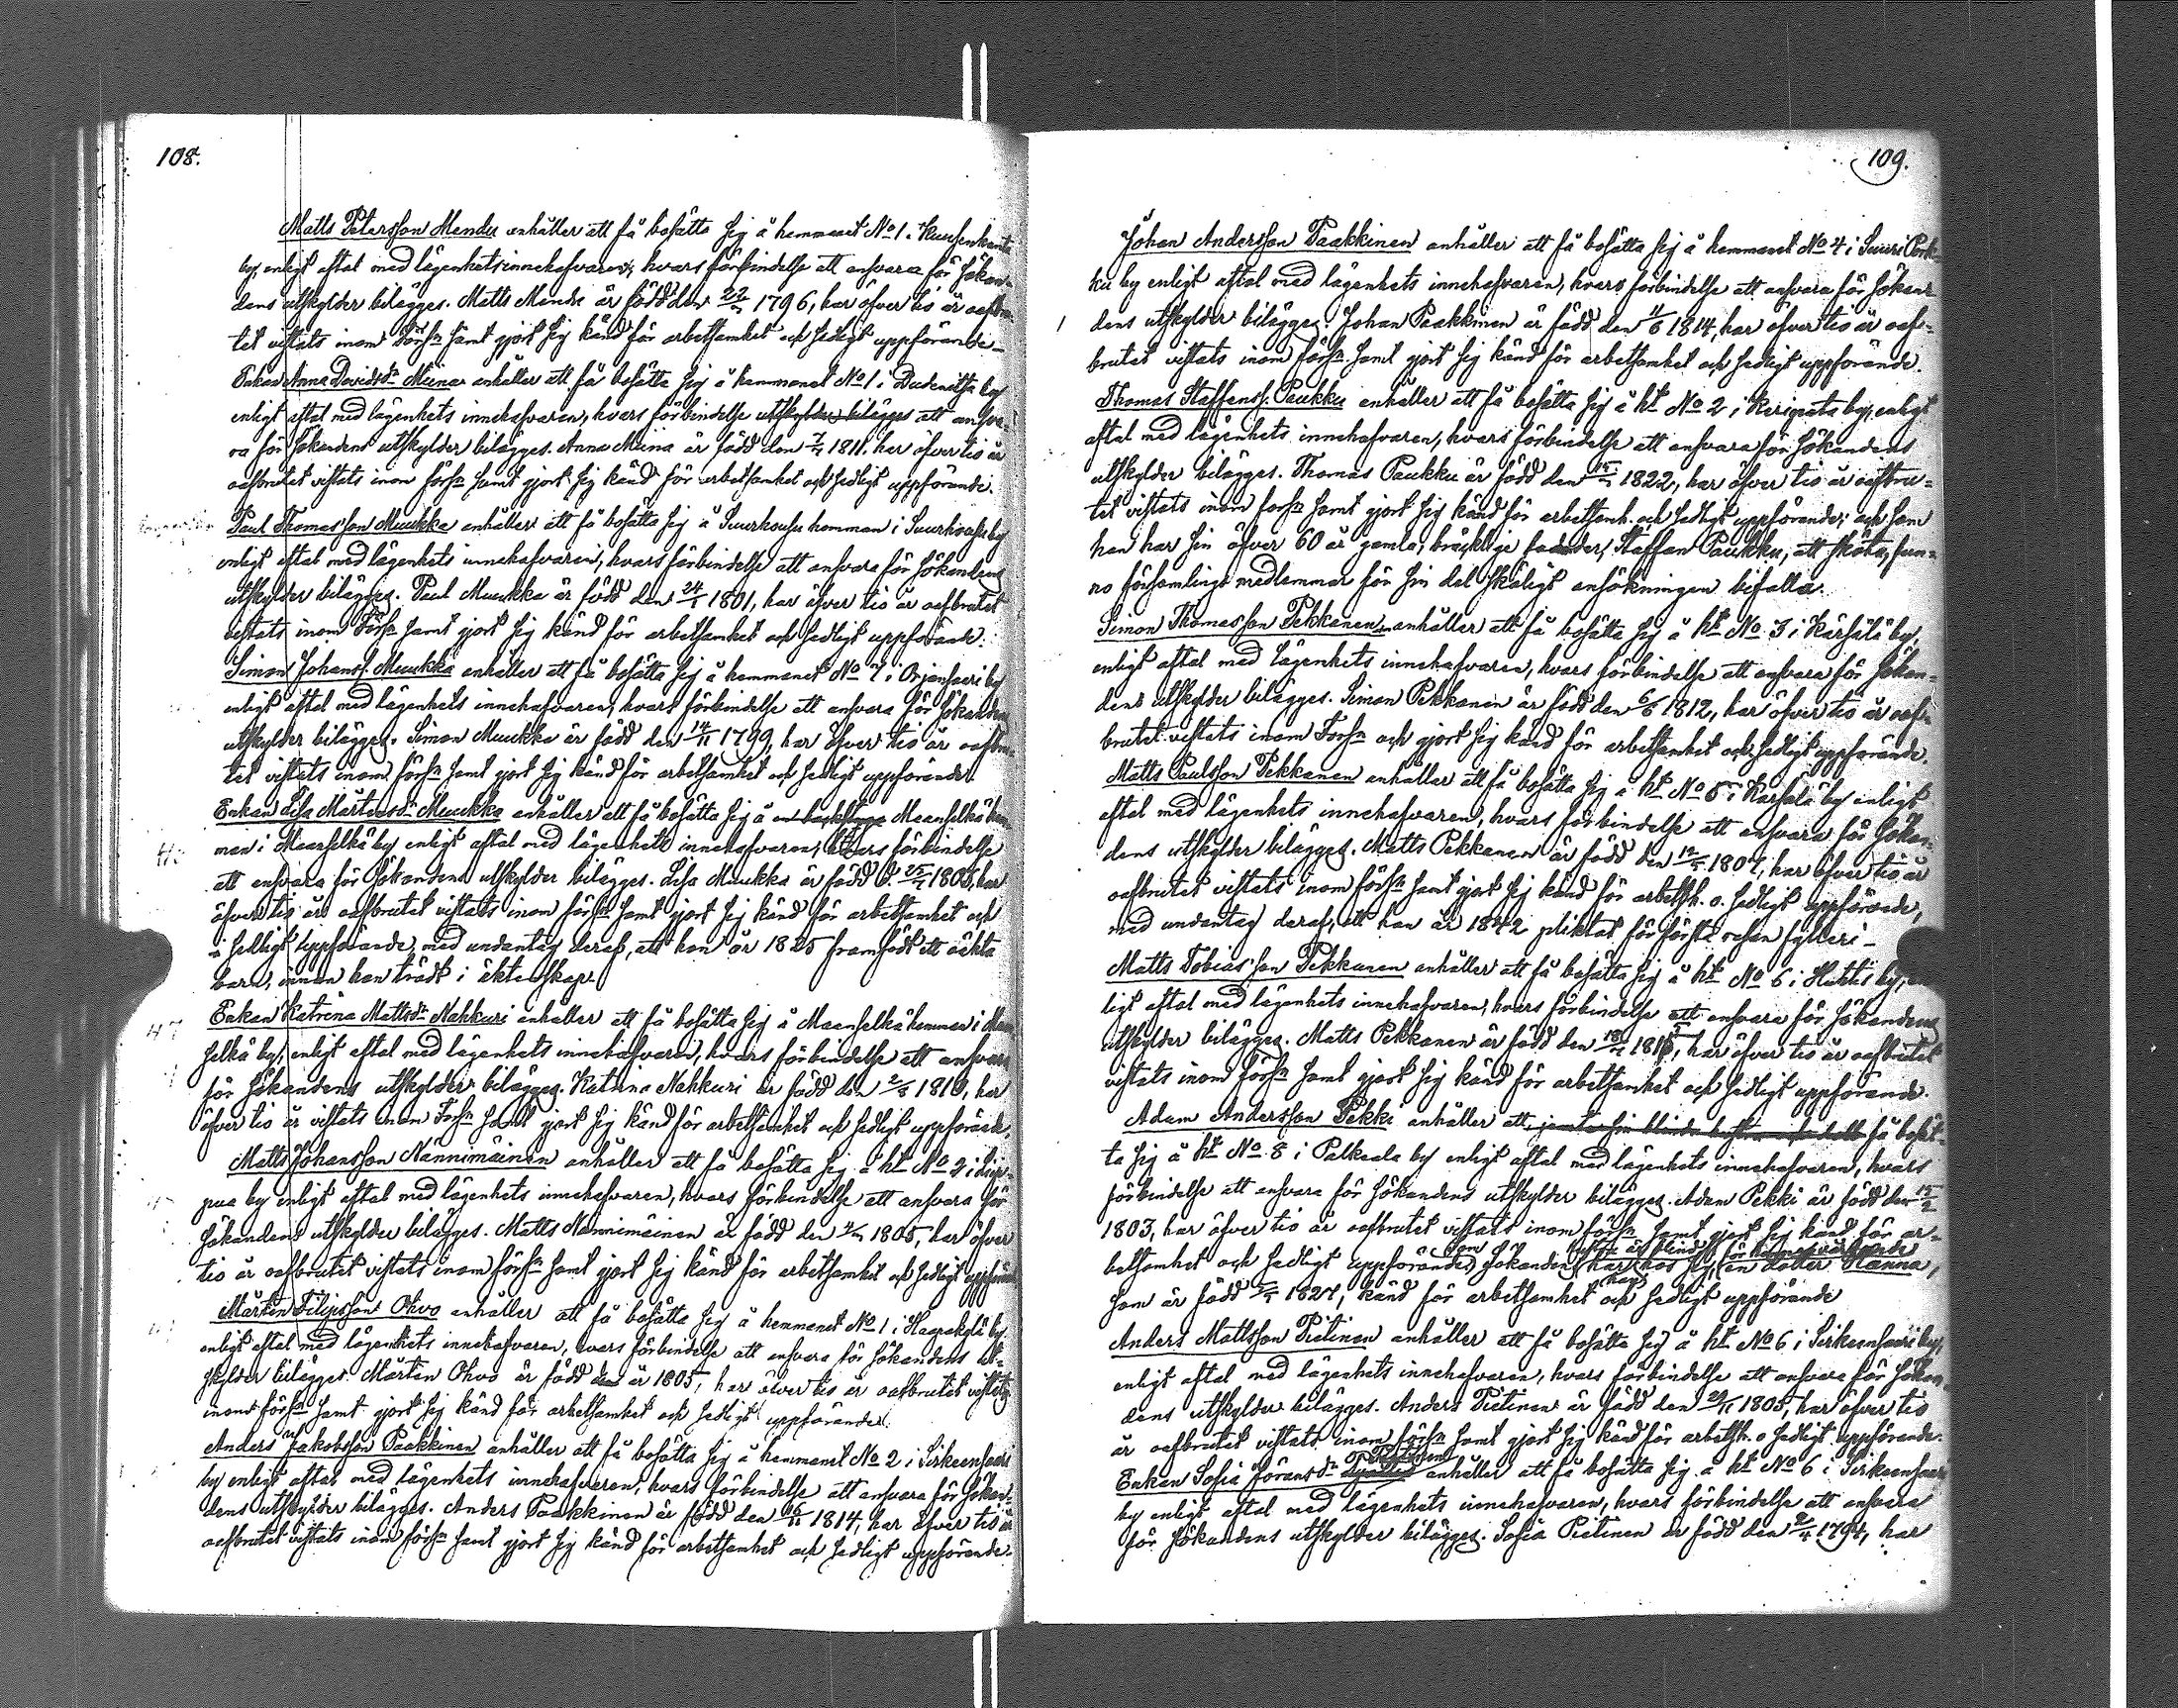 108.
Matts Petersson Mendu anhåller att få bosätta sig å hemmanet No 1 i Kuusenkanta
by, enligt aftal med lägenhetsinnehafvaren, hvars förbindelse att ansvara för sökan-
dens utskylder bilägges. Matts Mendu är född den 22/ 1796, har öfver tio år oafbru-
tet vistats inom Förs:n samt gjort sig känd för arbetsamhet och sedligt uppförande.
Enkan Anna Davidsd:r Meina anhåller att få bosätta sig å hemmanet No 1 i by
enligt aftal med lägenhets innehafvaren, hvars förbindelse utskylder bilägges att ansva-
ra för sökandens utskylder bilägges. Anna Meina är född den 1811. har öfver tio år
oafbrutet vistats inom förs:n samt gjort sig känd för arbetsamhet och sedligt uppförande.
Paul Thomasson Muukka anhåller att få bosätta sig å Suurhousu hemman i Suurhousu by
enligt aftal med lägenhets innehafvaren, hvars förbindelse att ansvara för sökandens
utskylder bilägges. Paul Muukka är född den 24/1 1801, har öfver tio år oafbrutet
vistats inom Förs:n samt gjort sig känd för arbetsamhet och sedligt uppförande.
Simon Johanss. Muukka anhåller att få bosätta sig å hemmanet No 7 i Orjensaari by
enligt aftal med lägenhets innehafvaren, hvars förbindelse att ansvara för sökandens
utskylder bilägges. Simon Muukka är född den 14/11 1799, har öfver tio år oafbru-
tet vistats inom förs:n samt gjort sig känd för arbetsamhet och sedligt uppförande.
Enkan Lisa Mårtensd:r Muukka anhåller att få bosätta sig å Maanselkä hem-
man i Maanselkä by enligt aftal med lägenhets innehafvaren, hvars förbindelse
att ansvara för sökandens utskylder bilägges. Lisa Muukka är född d. 1805, har
öfver tio år oafbrutet vistats inom förs:n samt gjort sig känd för arbetsamhet och
sedligt uppförande, med undantag deraf, att hon år 1825 framfödt ett oäkta
barn, innan hon trädt i äktenskap.
47
Enkan Katrina Mattsd:r Nahkuri anhåller att få bosätta sig å Maanselkä hemman i Maan-
selkä by, enligt aftal med lägenhets innehafvaren, hvars förbindelse att ansvara
för sökandens utskylder bilägges. Katrina Nahkuri är född den 1810, har
öfver tio år vistats inom Förs:n samt gjort sig känd för arbetsamhet och sedligt uppförande.
Matts Johansson Nännimäinen anhåller att få bosätta sig å h:t No 2 i
pua by enligt aftal med lägenhets innehafvaren, hvars förbindelse att ansvara för
sökandens utskylder bilägges. Matts Nännimäinen är född den 1805, har öfver
tio år oafbrutet vistats inom förs:n samt gjort sig känd för arbetsamhet och sedligt uppförande
Mårten Filipsson Ohvo anhåller att få bosätta sig å hemmanet No 1 i by.
enligt aftal med lägenhets innehafvaren, hvars förbindelse att ansvara för sökandens ut-
skylder bilägges. Mårten Ohvo är född år 1805, har öfver tio år oafbrutet vistats
inom förs:n samt gjort sig känd för arbetsamhet och sedligt uppförande.
Anders Jakobsson Paakkinen anhåller att få bosätta sig å hemmanet No 2 i Sirkeensaari
by enligt aftal med lägenhets innehafvaren, hvars förbindelse att ansvara för sökan-
dens utskylder bilägges. Anders Paakkinen är född den 16/11 1814, har öfver tio år
oafbrutet vistats inom förs:n samt gjort sig känd för arbetsamhet och sedligt uppförande.
109.
Johan Andersson Paakkinen anhåller att få bosätta sig å hemmanet No 4 i Suuri Pork-
ku by enligt aftal med lägenhets innehafvaren, hvars förbindelse att ansvara för sökan-
dens utskylder bilägges. Johan Paakkinen är född den 11/6 1814, har öfver tio år oaf-
brutet vistats inom förs:n samt gjort sig känd för arbetsamhet och sedligt uppförande.
Thomas Staffanss. Paukku anhåller att få bosätta sig å h:t No 2 i by, enligt
aftal med lägenhets innehafvaren, hvars förbindelse att ansvara för sökandens
utskylder bilägges. Thomas Paukku är född den 1822, har öfver tio år oafbru-
tet vistats inom förs:n samt gjort sig känd för arbetsamh. och sedligt uppförande; och som
han har sin öfver 60 år gamla, bräcklige fader, Staffan Paukku, att sköta, fun-
no församlings medlemmar för sin del skäligt ansökningen bifalla.
Simon Thomasson Pekkanen anhåller att få bosätta sig å h:t No 3 i Kärsälä by,
enligt aftal med lägenhets innehafvaren, hvars förbindelse att ansvara för sökan-
dens utskylder bilägges. Simon Pekkanen är född den 6/6 1812, har öfver tio år oaf-
brutet vistats inom Förs:n och gjort sig känd för arbetsamhet och sedligt uppförande.
Matts Paulsson Pekkanen anhåller att få bosätta sig å h:t No 5 i Kärsälä by enligt
aftal med lägenhets innehafvaren, hvars förbindelse att ansvara för sökan-
dens utskylder bilägges. Matts Pekkanen är född den 1807, har öfver tio år
oafbrutet vistats inom förs:n samt gjort sig känd för arbetsh. o. sedligt uppförande,
med undantag deraf, att han år 1842 pliktat för första resan fylleri.
Matts Tobiasson Pekkanen anhåller att få bosätta sig å h:t No 6 i Huttis by, en-
ligt aftal med lägenhets innehafvaren, hvars förbindelse att ansvara för sökandens
utskylder bilägges. Matts Pekkanen är född den har öfver tio år oafbrutet
vistats inom förs:n samt gjort sig känd för arbetsamhet och sedligt uppförande.
Adam Andersson Pekki anhåller att jemte sin blinda hustru få bosät-
ta sig å h:t No 8 i Palkeala by enligt aftal med lägenhets innehafvaren, hvars
förbindelse att ansvara för sökandens utskylder bilägges. Adam Pekki är född den 15/2
1803, har öfver tio år oafbrutet vistats inom förs:n samt gjort sig känd för ar-
betsamhet och sedligt uppförande, sökanden har hos sig en dotter Hanna,
som är född 1827, känd för arbetsamhet och sedligt uppförande
Anders Mattsson Pietinen anhåller att få bosätta sig å h:t No 6 i Sirkeensaari by,
enligt aftal med lägenhets innehafvaren, hvars förbindelse att ansvara för sökan-
dens utskylder bilägges. Anders Pietinen är född den 29/11 1805, har öfver tio
år oafbrutet vistats inom förs:n samt gjort sig känd för arbetsh. o sedligt uppförande.
Enkan Sofia Göransd:r anhåller att få bosätta sig å h:t No 6 i Sirkeensaari
by enligt aftal med lägenhets innehafvaren, hvars förbindelse att ansvara
för sökandens utskylder bilägges. Sofia Pietinen är född den 1794, har